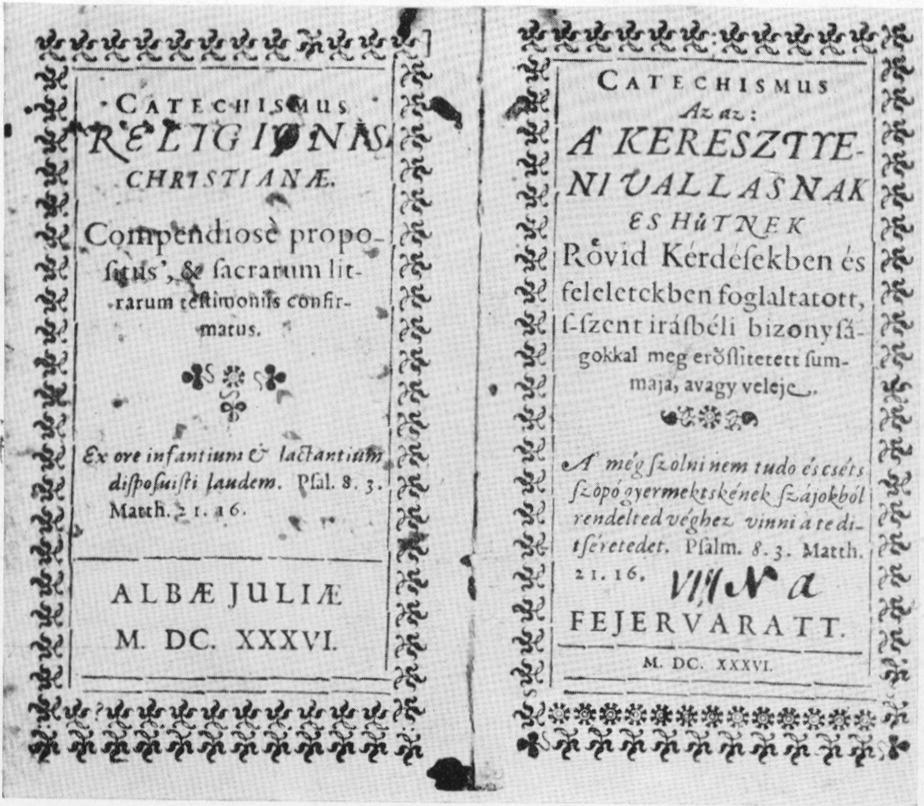 CATECHISMUS
RELIGIONIS
CHRISTIANÆ.
Compendiosè propo-
situs, & sacrarum lit-
rarum testimoniis confir-
matus.
Ex ore infantium & lactantium
disposuisti laudem. Psal. 8. 3.
Matth. 21. 16.
ALBÆ JULIÆ
M. DC. XXXVI.
CATECHISMUS
Az az:
A' KERESZTYE-
NI VALLASNAK
ES HůTNEK
Rővid Kérdésekben és
feleletekben foglaltatott,
s-szent irásbéli bizonysá-
gokkal meg erőssitetett sum-
maja, avagy veleje.
A' még szolni nem tudo és cséts
szopó gyermektskének szájokból
rendelted véghez vinni à te di-
tséretedet. Psalm. 8. 3. Matth.
21. 16.
FEJERVARATT.
M. DC. XXXVI.